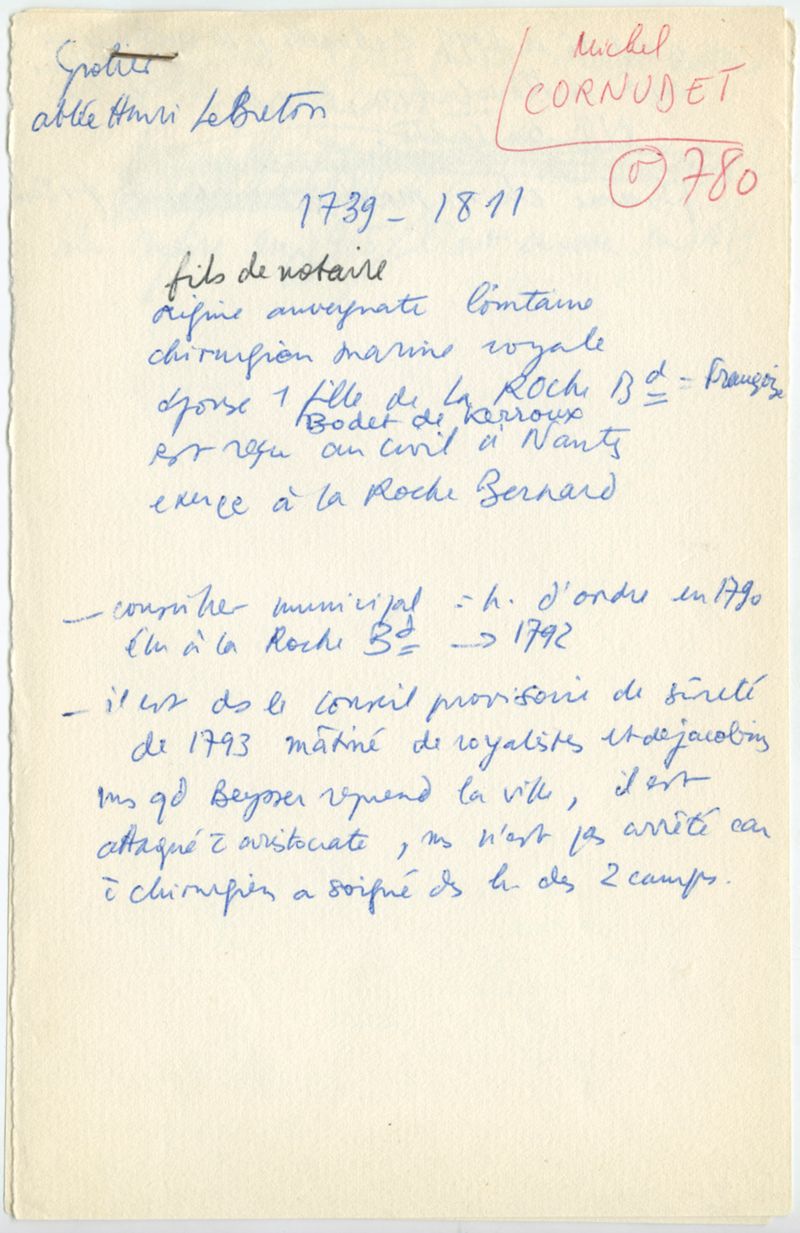 abbé Henri Le Breton
Michel
CORNUDET
780
1739 - 1811
fils de notaire
origine auvergnate lointaine
chirurgien marine royale
épouse 1 fille de la Roche Bd = Françoise
Bodet de Kerroux
est reçu au civil à Nantes
exerce à la Roche Bernard
- conseiller municipal = h. d'ordre en 1790
élu à la Roche Bd → 1792
- il est ds le conseil provisoire de sûreté
de 1793 mâtiné de royalistes et de jacobins
ms qd Beysser reprend la ville, il est
attaqué c̄ aristocrate, ms n'est pas arrêté car
c̄ chirurgien a soigné des h. des 2 camps.